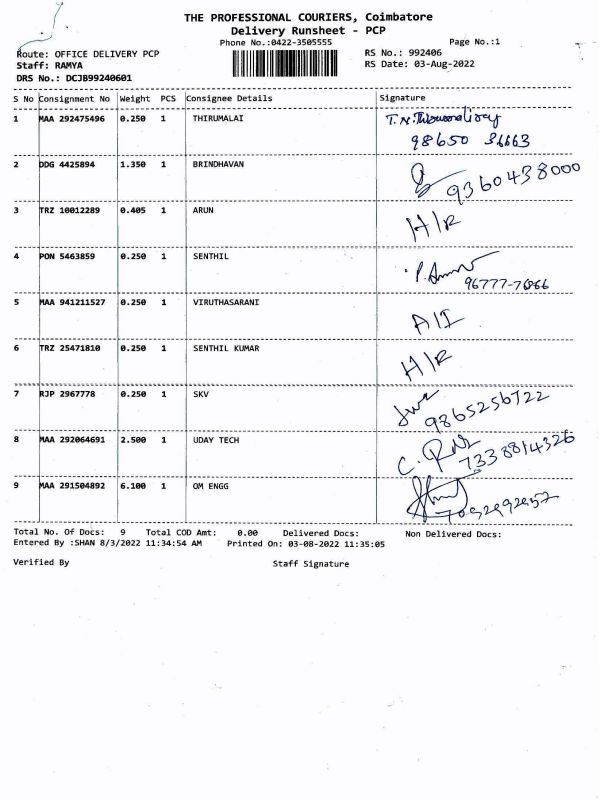 THE PROFESSIONAL COURIERS, Coimbatore
Delivery Runsheet - PCP
Phone No.:0422-3505555 Page No.:1
Route: OFFICE DELIVERY PCP RS No.: 992406
Staff: RAMYA RS Date: 03-Aug-2022
DRS No.: DCJB99240601
S No Consignment No Weight PCS Consignee Details Signature
1 MAA 292475496 0.250 1 THIRUMALAI
98650 36663
2 DDG 4425894 1.350 1 BRINDHAVAN
9360438000
3 TRZ 10012289 0.405 1 ARUN H/R
4 PON 5463859 0.250 1 SENTHIL
5 MAA 941211527 0.250 1 VIRUTHASARANI A/I
6 TRZ 25471810 0.250 1 SENTHIL KUMAR H/R
7 RJP 2967778 0.250 1 SKV
9865256722
8 MAA 292064691 2.500 1 UDAY TECH
7338814326
9 MAA 291504892 6.100 1 OM ENGG
Total No. Of Docs: 9 Total COD Amt: 0.00 Delivered Docs: Non Delivered Docs:
Entered By :SHAN 8/3/2022 11:34:54 AM Printed On: 03-08-2022 11:35:05
Verified By Staff Signature